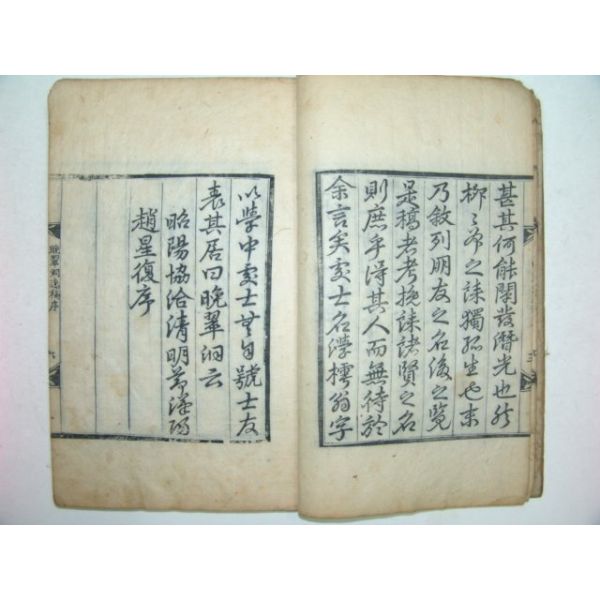 甚其何能闡發潛光也然
柳々州之誄獨孤生也末
乃敘列朋友之名後之覽
是稿者考挽誄諸賢之名
則庶乎得其人而無待於
余言矣處士名學翁字
以學中處士無自號士友
表其居曰晩翠洞云
昭陽協洽清明節漢陽
趙星復序
晩翠洞逸稿序